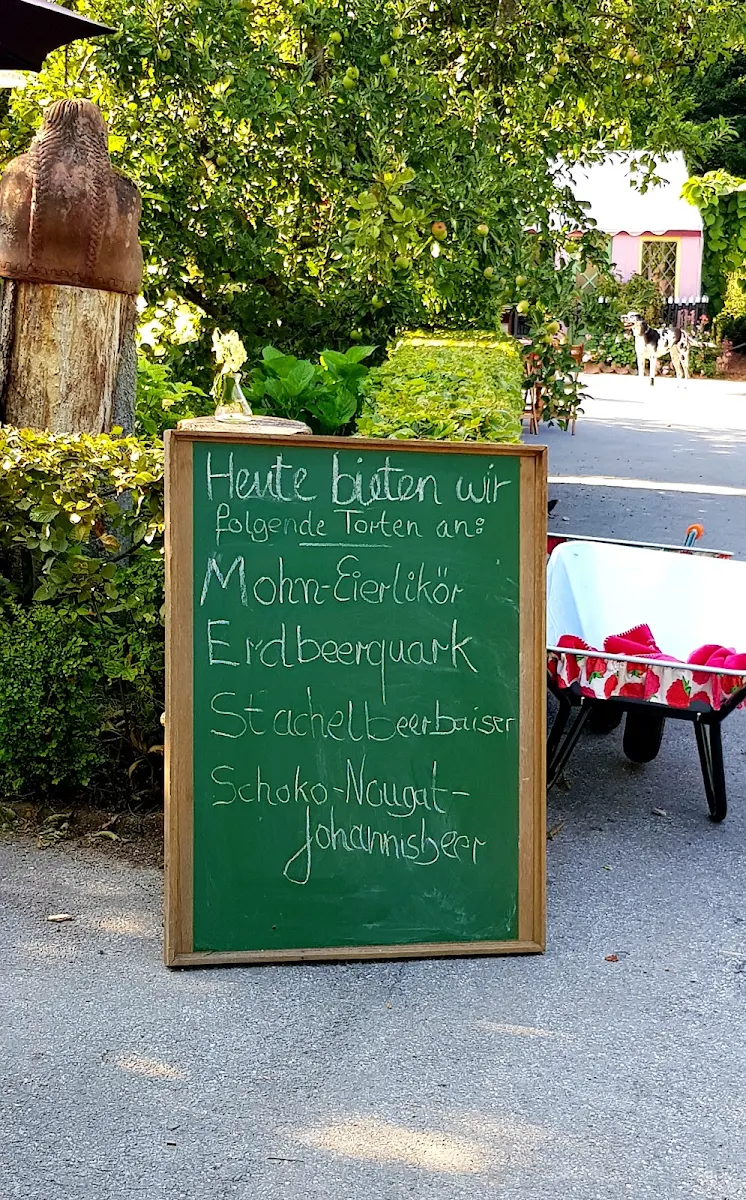 Heute bieten wir
folgende Torten an:
Mohn-Eierlikör
Erdbeerquark
Stachelbeerbaiser
Schoko-Nougat-
Johannisbeer